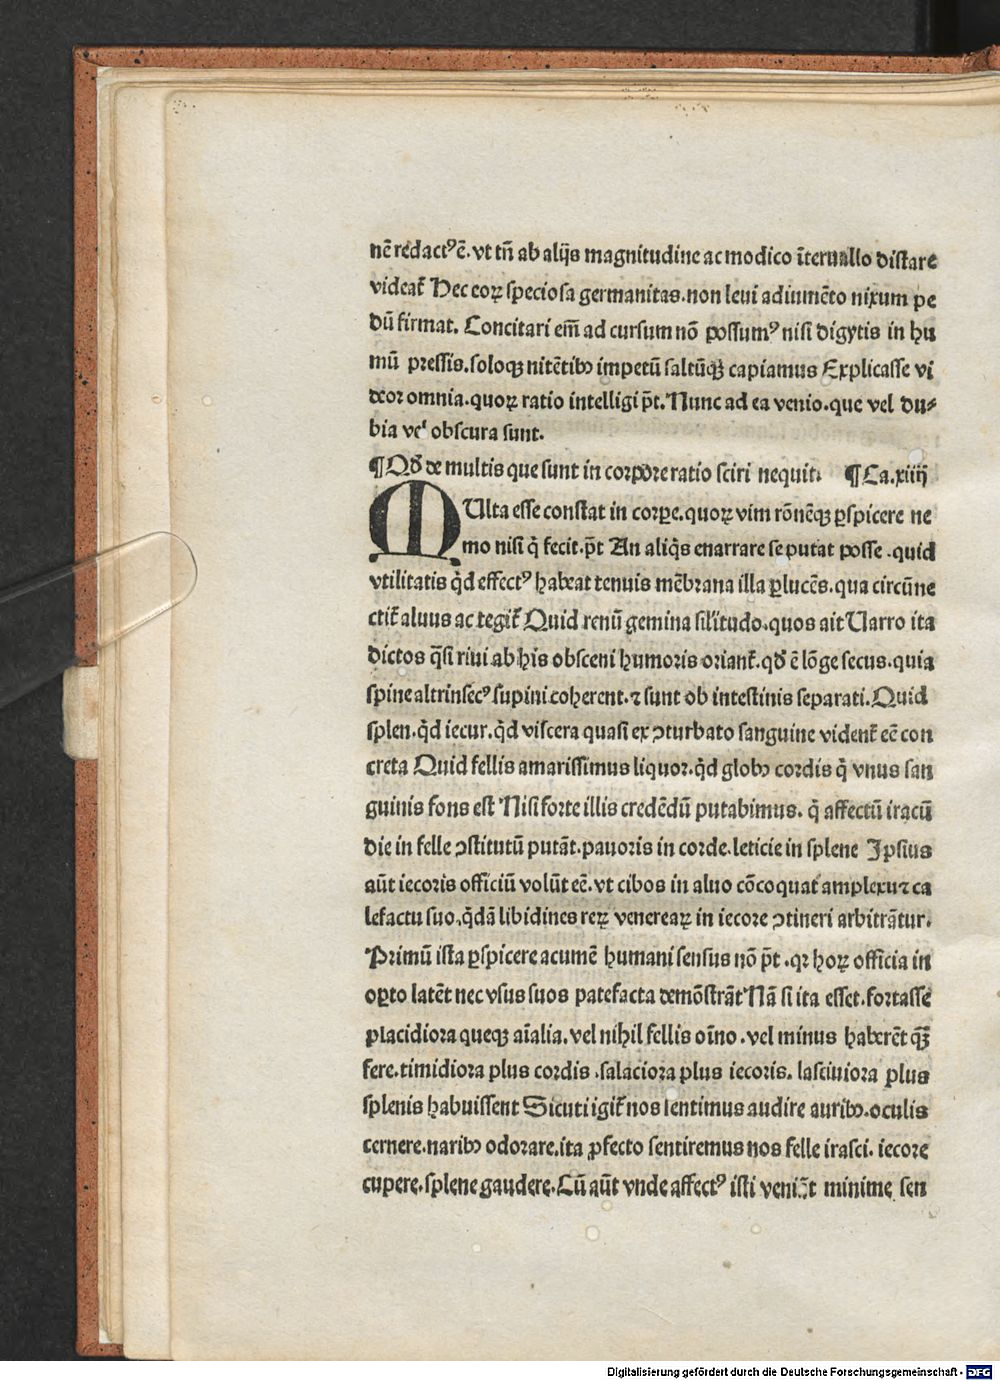 nē redactꝰ ē. vt tñ ab alijs magnitudine ac modico īteruallo distare
videat᷑ Hec eoꝝ speciosa germanitas. non leui adiumēto nixum pe
dū firmat. Concitari em̄ ad cursum nō possumꝰ nisi digytis in hu
mū pressis. soloqꝫ nitētibꝫ impetū saltūqꝫ capiamus Explicasse vi
deor omnia. quoꝝ ratio intelligi pt̄. Nunc ad ea venio. que vel du⸗
bia vel obscura sunt.
¶ Qđ de multis que sunt in corpore ratio sciri nequit. ¶ Ca. xiiij
MUlta esse constat in corpe. quoꝝ vim rōnēqꝫ ꝑspicere ne
mo nisi q̇ fecit. pt̄ An aliq̇s enarrare se putat posse. quid
vtilitatis q̇d effectꝰ habeat tenuis mēbrana illa ꝑlucēs. qua circūne
ctit᷑ aluus ac tegit᷑ Quid renū gemina sil'itudo. quos ait Uarro ita
dictos q̄si riui ab his obsceni humoris oriant᷑. qđ ē lōge secus. quia
spine altrinsecꝰ supini coherent. ⁊ sunt ob intestinis separati. Quid
splen. q̇d iecur. q̇d viscera quasi ex ↄturbato sanguine vident᷑ eē con
creta Quid fellis amarissimus liquor. q̇d globꝫ cordis q̇ vnus san
guinis fons est Nisi forte illis credēdū putabimus. q̇ affectū iracū
die in felle ↄstitutū putāt. pauoris in corde. leticie in splene Ipsius
aūt iecoris officiū volūt eē. vt cibos in aluo cōcoquat amplexu ⁊ ca
lefactu suo. q̇dā libidines reꝝ venereaꝝ in iecore ↄtineri arbitrātur.
Primū ista ꝑspicere acumē humani sensus nō pt̄. qꝛ hoꝝ officia in
oꝑto latēt nec vsus suos patefacta demōstrāt Nā si ita esset. fortasse
placidiora queqꝫ aīalia. vel nihil fellis oīno. vel minus haberēt qꝫ̄
fere. timidiora plus cordis. salaciora plus iecoris. lasciuiora plus
splenis habuissent Sicuti igit᷑ nos sentimus audire auribꝫ. oculis
cernere. naribꝫ odorare. ita ꝓfecto sentiremus nos felle irasci. iecore
cupere. splene gaudere. Cū aūt vnde affectꝰ isti veniāt minime sen
Digitalisierung gefördert durch die Deutsche Forschungsgemeinschaft - DFG